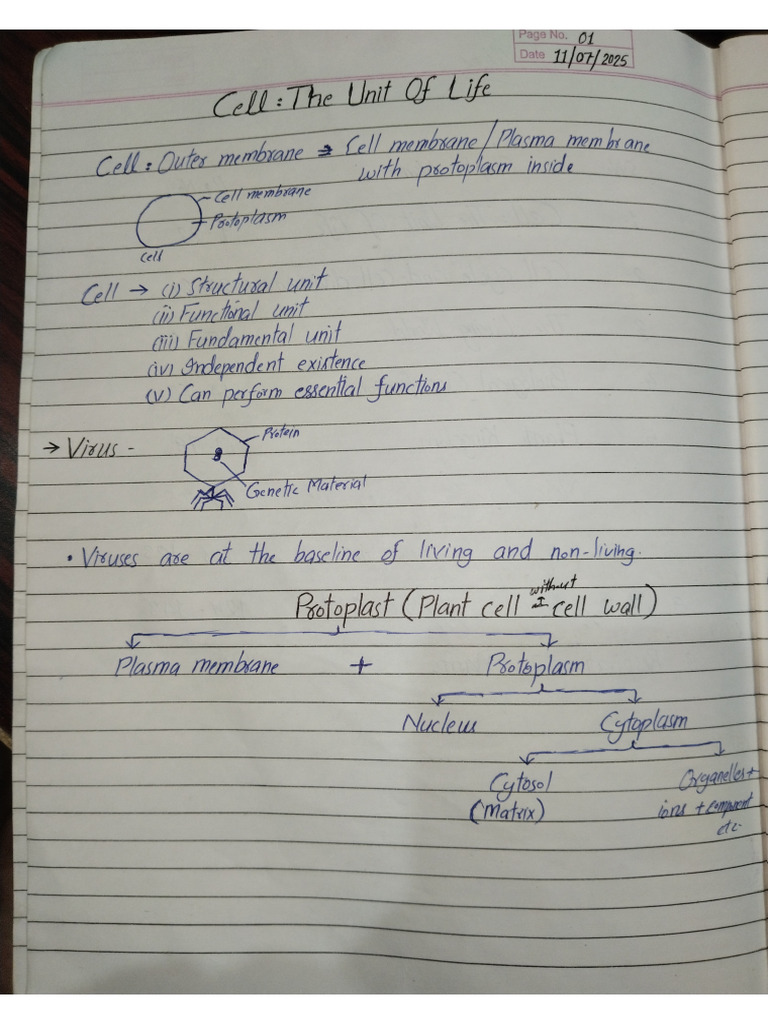 Page No. 01
Date 11/07/2025
Cell : The Unit Of Life
Cell : Outer membrane → Cell membrane/Plasma membrane
with protoplasm inside
Cell membrane
Protoplasm
Cell
Cell → (i) Structural unit
(ii) Functional unit
(iii) Fundamental unit
(iv) Independent existence
(v) Can perform essential functions
→ Virus -
Protein
Genetic Material
• Viruses are at the baseline of living and non-living.
Protoplast (Plant cell without cell wall)
Plasma membrane + Protoplasm
Nucleus Cytoplasm
Cytosol Organelles +
(Matrix) ions + component
etc.